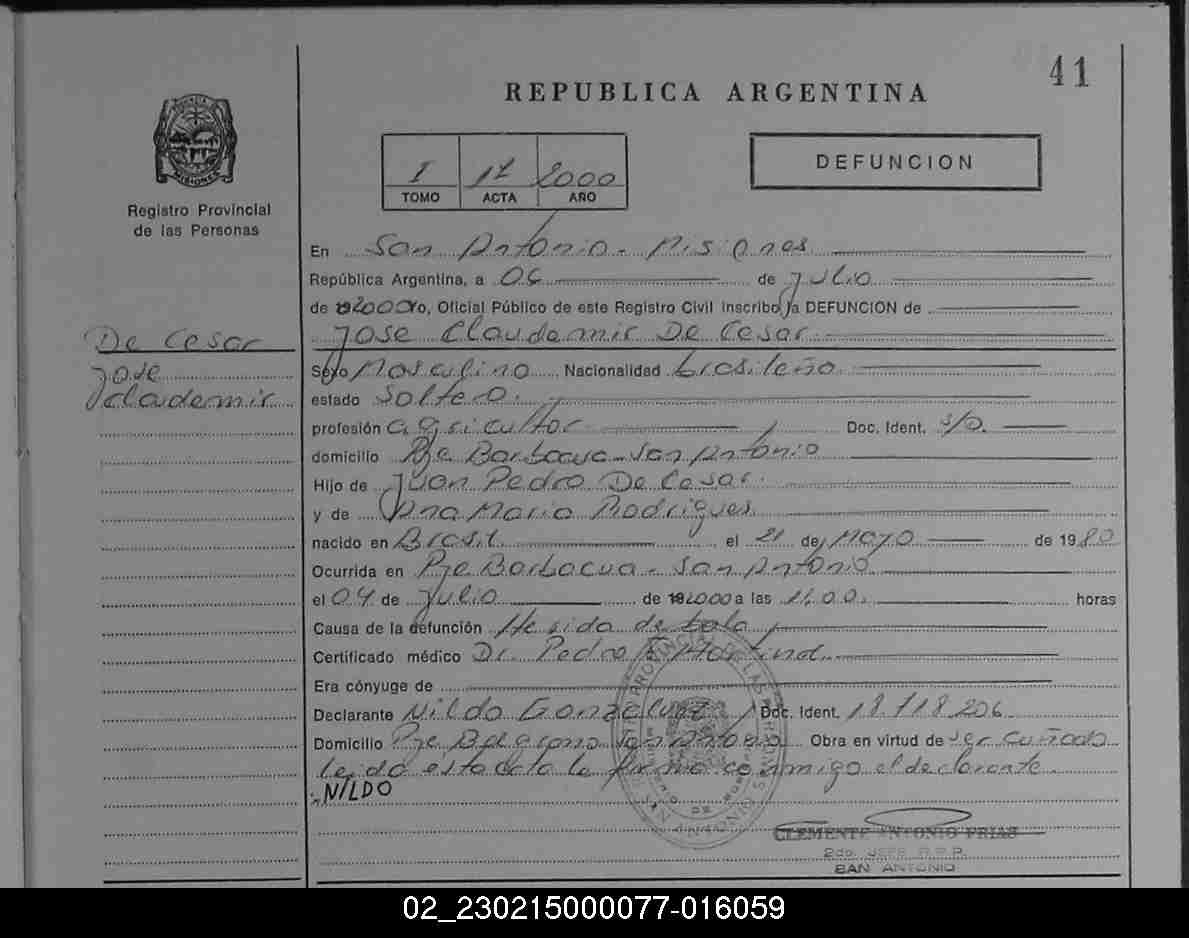 41
REPUBLICA ARGENTINA
I 17 2000
TOMO ACTA AÑO
DEFUNCION
MISIONES
Registro Provincial
de las Personas
En San Antonio - Misiones
República Argentina, a 06 de Julio
de 2000 Yo, Oficial Público de este Registro Civil inscribo la DEFUNCION de
Jose Claudemir De Cesar
De Cesar
Jose
Claudemir
Sexo Masculino Nacionalidad brasileño
estado Soltero.
profesión agricultor Doc. Ident. S/D.
domicilio Pje Barbacua - San Antonio
Hijo de Juan Pedro De Cesar.
y de Ana Maria Rodrigues
nacido en Brasil el 21 de Mayo de 1980
Ocurrida en Pje Barbacua - San Antonio
el 04 de Julio de 2000 a las 11,00. horas
Causa de la defunción Herida de bala
Certificado médico Dr. Pedro
Era cónyuge de
Declarante Nildo Doc. Ident. 18.718.206
Domicilio Pje Belgrano San Antonio Obra en virtud de ser cuñado
leida esta acta la firma conmigo el declarante.
NILDO
CLEMENTE ANTONIO FRIAS
2do. JEFE R.P.P.
SAN ANTONIO
02_230215000077-016059